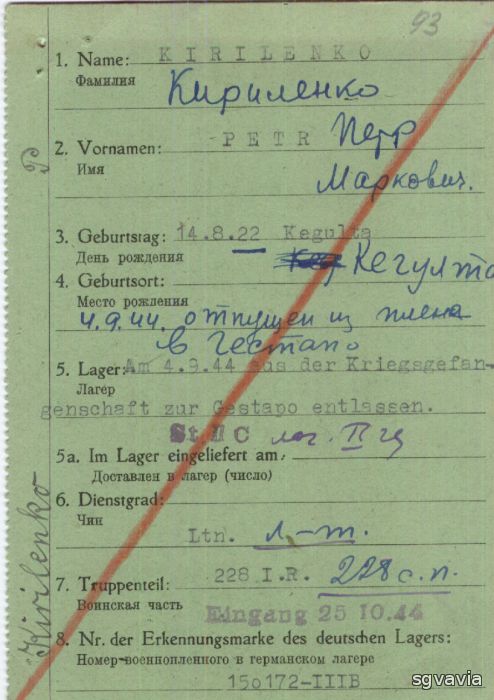 93
1. Name: KIRILENKO
Фамилия Кириленко
2. Vornamen: PETR Петр
Имя
Маркович.
3. Geburtstag: 14.8.22 Kegulta
День рождения
Кегулта
4. Geburtsort:
Место рожления
4.9.44. отпущен из плена
в гестапо
5. Lager: Am 4.9.44 aus der Kriegsgefan-
Лагерь
genschaft zur Gestapo entlassen.
лаг. II
5a. Im Lager eingeliefert am:
Доставлен в лагерь (число)
6. Dienstgrad:
Чин
Ltn. л-т.
7. Truppenteil: 228 I.R. 228 с.п.
Воинская часть
Eingang 25 10.44
8. Nr. der Erkennungsmarke des deutschen Lagers:
Номер-военнопленного в германском лагере
15o172-IIIB
Kirilenko
P
sgvavia